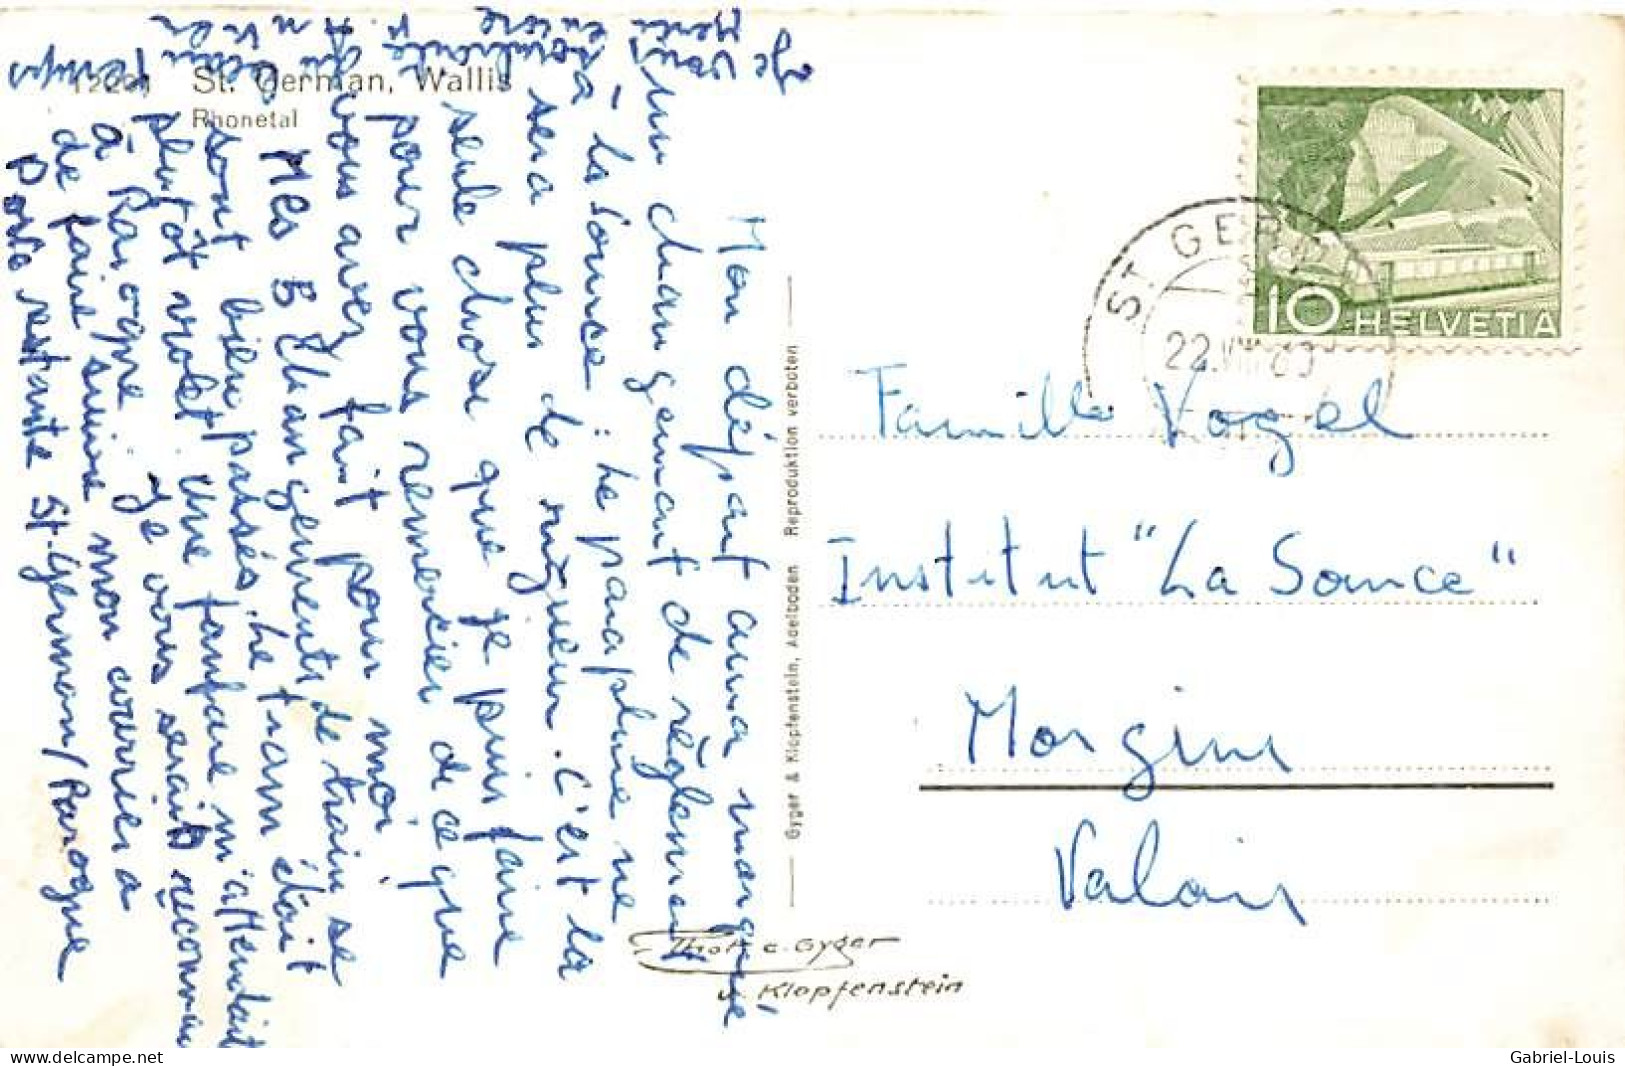 12291 St. German, Wallis
Rhonetal
Mon départ aura marqué
un changement de règlement
à la Source : Le parapluie ne
sera plus de rigueur. C'est la
seule chose que je puis faire
pour vous remercier de ce que
vous avez fait pour moi.
Mes 3 changements de train se
sont bien passés. Le tram était
plutôt violet. Une fanfare m'attendait
à Rarogne. Je vous serais reconn
de faire suivre mon courrier à
Poste restante St. German/Rarogne
Je vous
encore
Gyger & Klopfenstein, Adelboden Reproduktion verboten
Phot. c. Gyger
u. Klopfenstein
ST. GERMAN
22.VIII.60
10 HELVETIA
Famille Vogel
Institut "La Source"
Morgins
Valais
www.delcampe.net
Gabriel-Louis